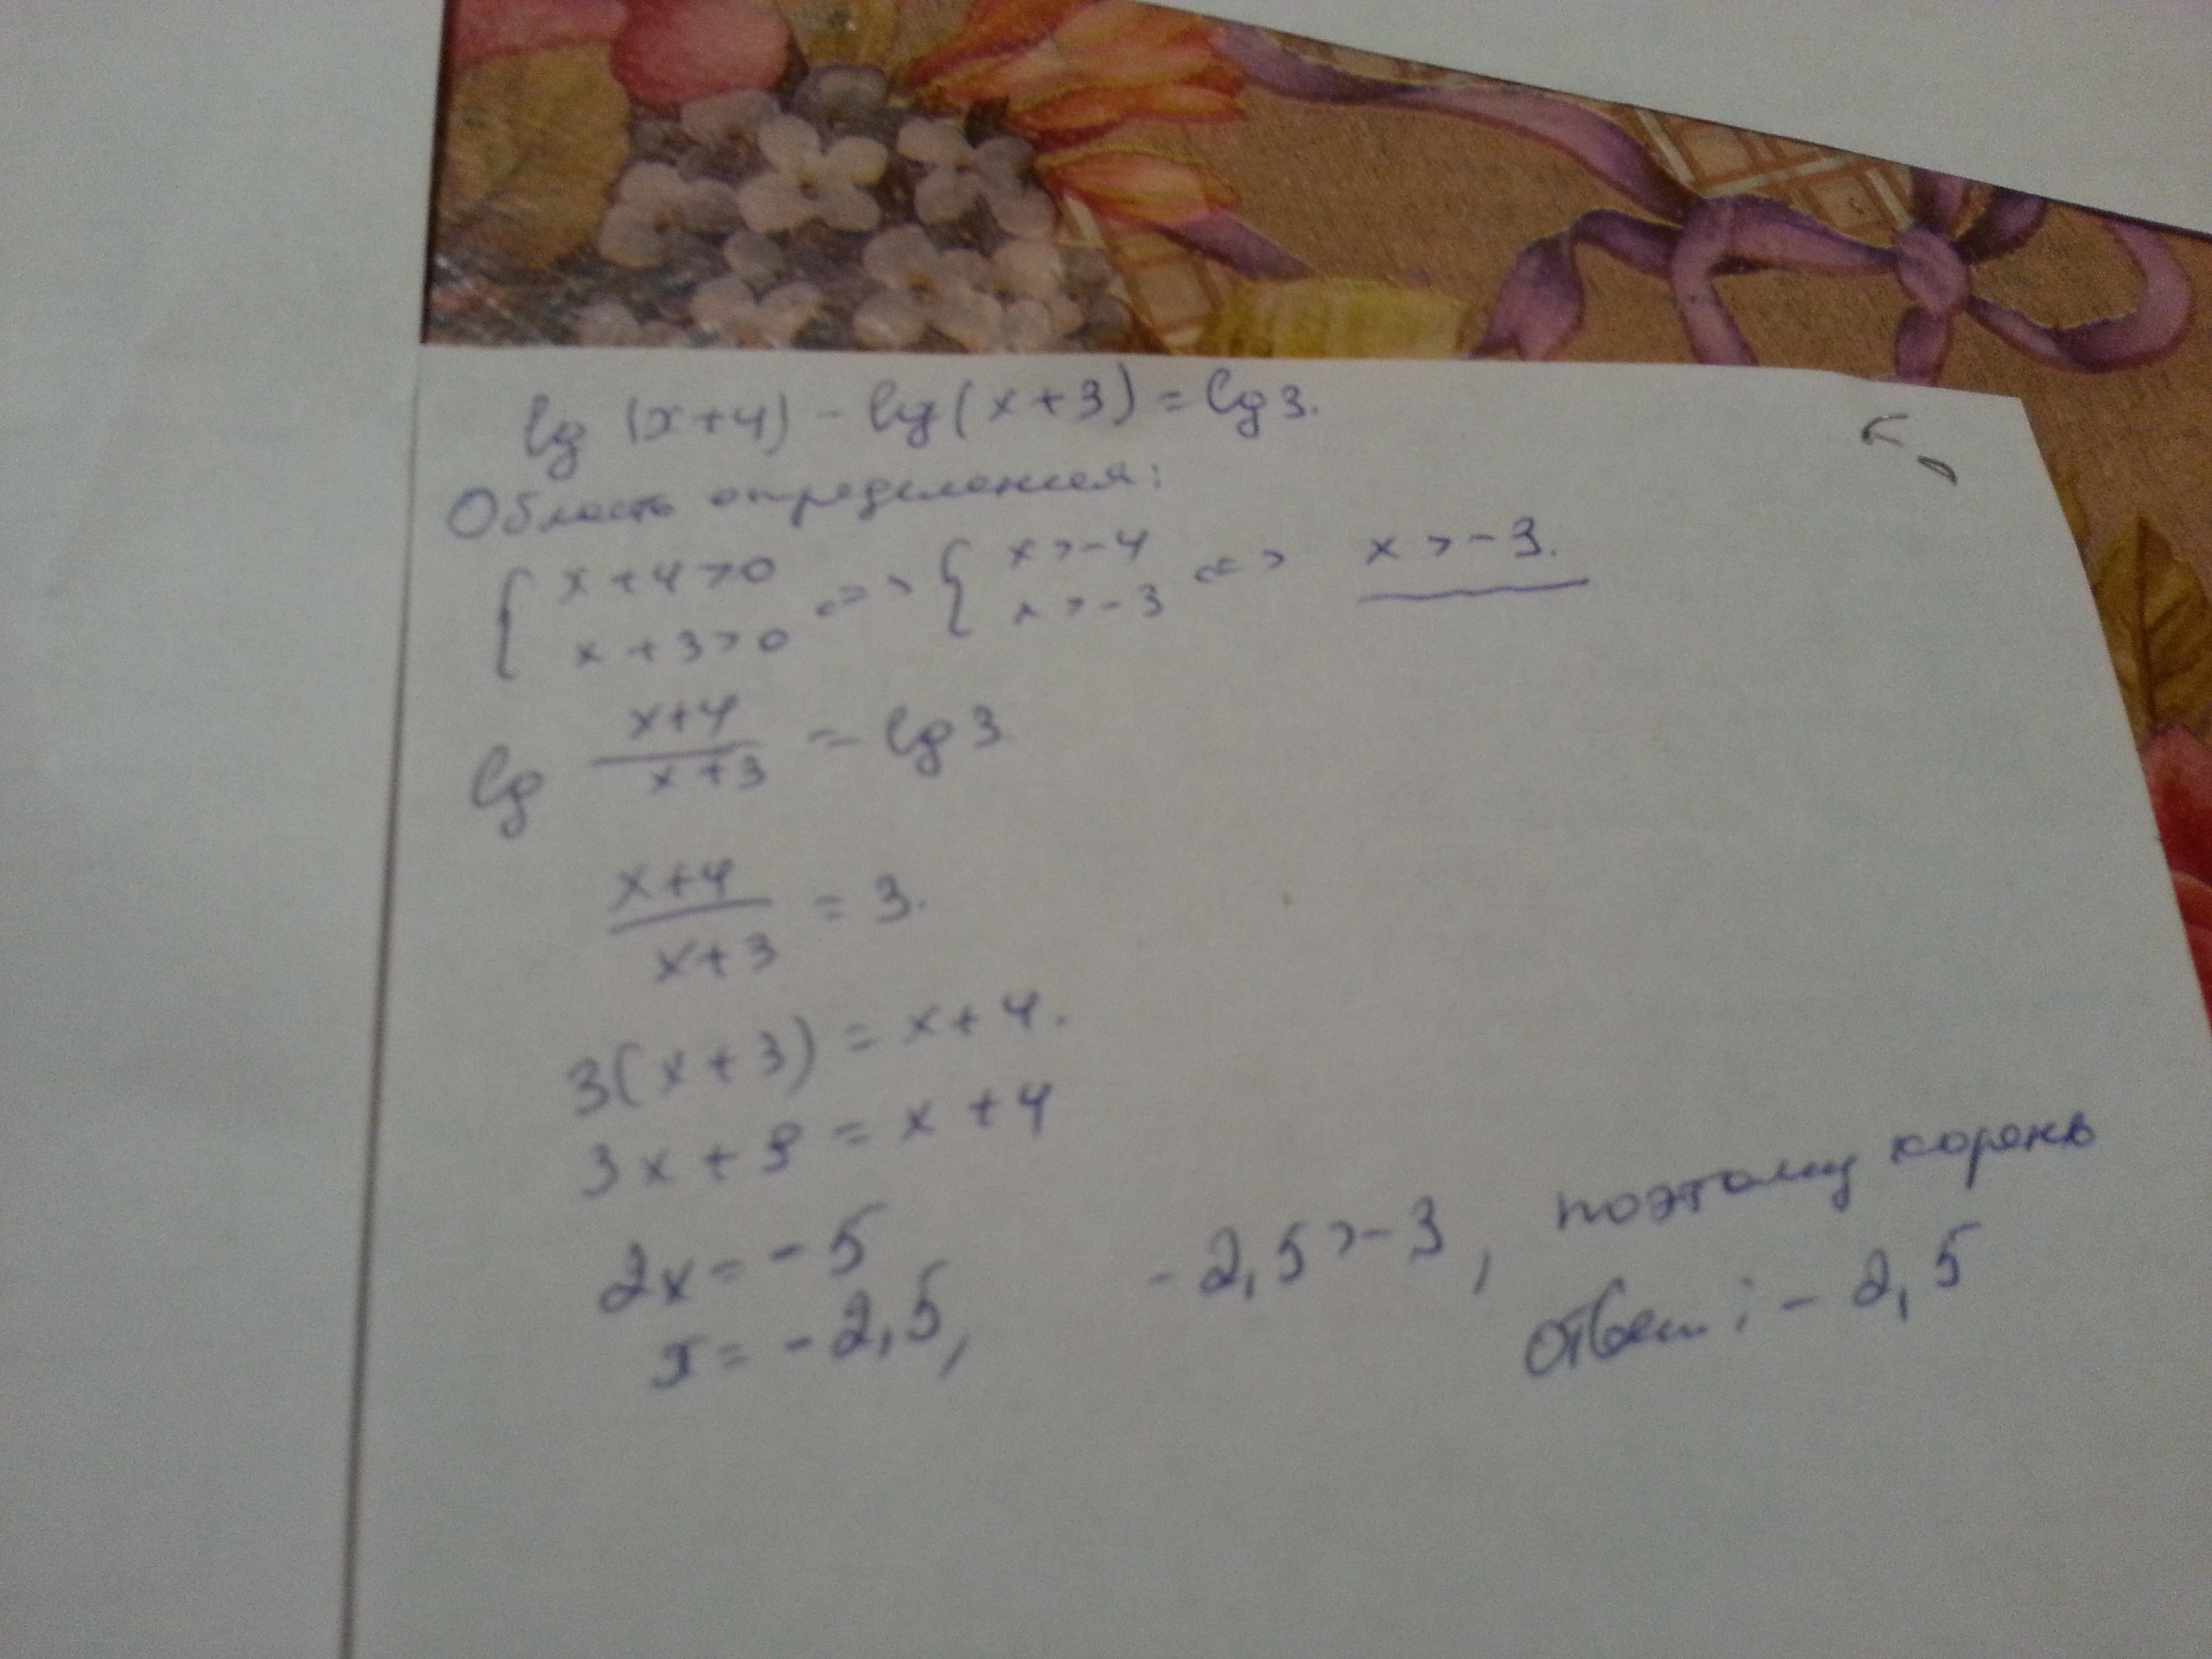 lg (x+4) - lg (x+3) = lg 3.
Область определения:
{ x+4>0 <=> { x>-4 <=> x>-3.
x+3>0 x>-3
lg x+4 / x+3 = lg 3
x+4 / x+3 = 3.
3(x+3) = x+4.
3x+9 = x+4
2x = -5
x = -2,5, -2,5>-3, поэтому корень
ответ: -2,5